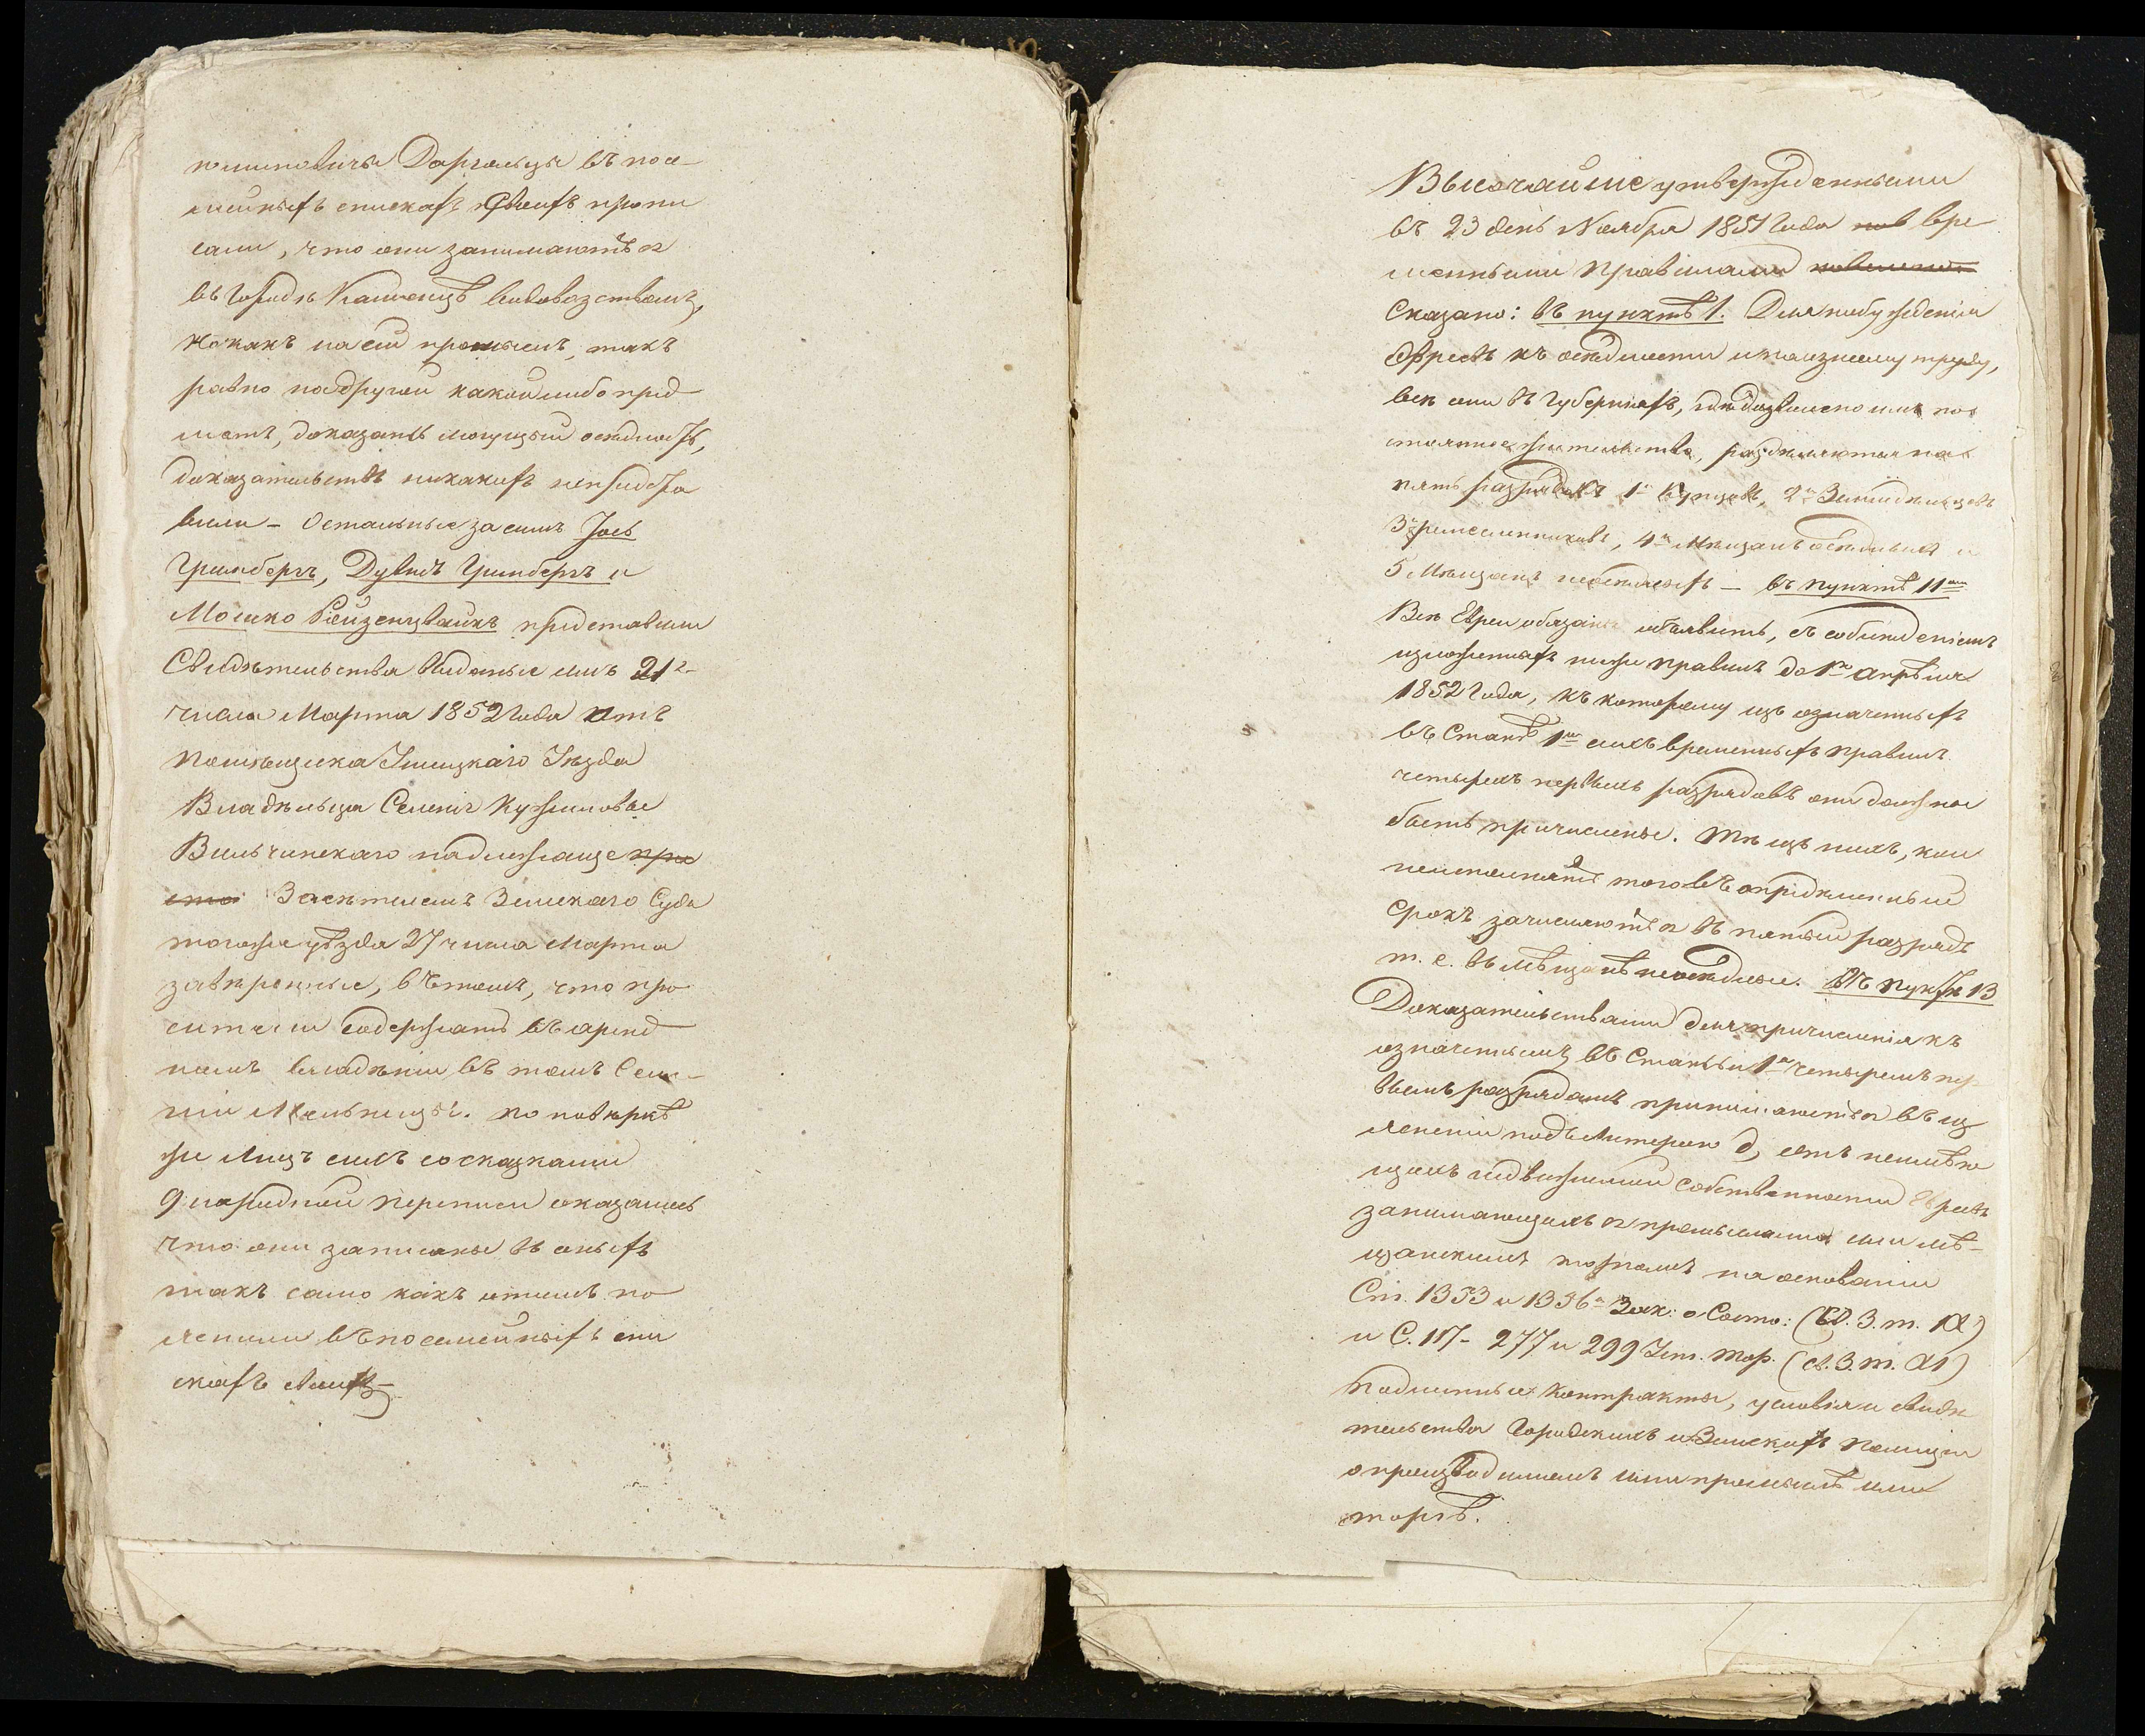 въ посе-
мейныхъ спискахъ своихъ пропи
сали, что они занимаются
въ городѣ Каменцѣ водовозствомъ,
но какъ на сей промыселъ, такъ
равно на другой какой либо пред-
метъ, доказать могущій осѣдлость,
доказательствъ никакихъ непредста
вили – Остальные за симъ Іось
Гринбергъ, Дувидъ Гринбергъ и
Мошко Ройзенцвайкъ представили
Свидѣтельства выданые имъ 21го
числа Марта 1852 года отъ
помѣщика Ушицкаго Уѣзда
Владѣльца Селенія Кужиловъ
Вильчинскаго надлежаще при
Засѣтелемъ Земскаго Суда
того же уѣзда 27 числа Марта
завѣреные, въ томъ, что про
сители содержатъ въ аренд
номъ владѣніи въ томъ Селе-
ніи Мельницы. по повѣркѣ
же лицъ сихъ со сказками
9 народной переписи оказалось
что они записаны въ оныхъ
такъ само какъ и
въ посемейныхъ спи
скахъ
Высочайше утвержденными
въ 23 день Ноября 1851 года вре
менными правилами
Сказано: въ пунктѣ 1. Для побужденія
Евреевъ къ осѣдлости и полезному труду,
всѣ они въ Губерніяхъ, гдѣ дозволено имъ пос
тоянное жительство, раздѣляются на
пять разрядовъ 1е Купцовъ, 2е Земледѣльцевъ
3е ремесленниковъ, 4е Мѣщанъ осѣдлыхъ и
5 Мѣщанъ неосѣдлыхъ – въ пунктѣ 11мъ
Всѣ Евреи обязаны объявить, съ соблюденіемъ
изложенныхъ ниже правилъ до 1го апрѣля
1852 года, къ которому изъ означенныхъ
въ Статьѣ 1й сихъ временныхъ правилъ
четырехъ первыхъ разрядовъ они должны
быть причислены. Тѣ изъ нихъ, кои
неисполнятъ того въ опредѣленный
срокъ зачисляются въ пятый разрядъ
т. е. въ мѣщанѣ неосѣдлые. Въ пунктѣ 13
Доказательствами для причисленія къ
означеннымъ въ Статьи 1й четыремъ пер
вымъ разрядамъ принимаются въ изъ
ясненіи подъ литерою д, отъ неимѣю
щихъ недвижимой собственности Евреевъ
занимающихся промыслами или мѣ-
щанскимъ торгомъ на основаніи
Ст. 1353 и 1336й Зак: о Состо: (Св. З. т. IX)
и С. 117– 277 и 299 Уст. Тор. (св. З. т. XI)
подлинные Контракты, условія и свидѣ
тельства Городскихъ и Земскихъ Полицій
о производимомъ ими промыслѣ или
торгѣ.